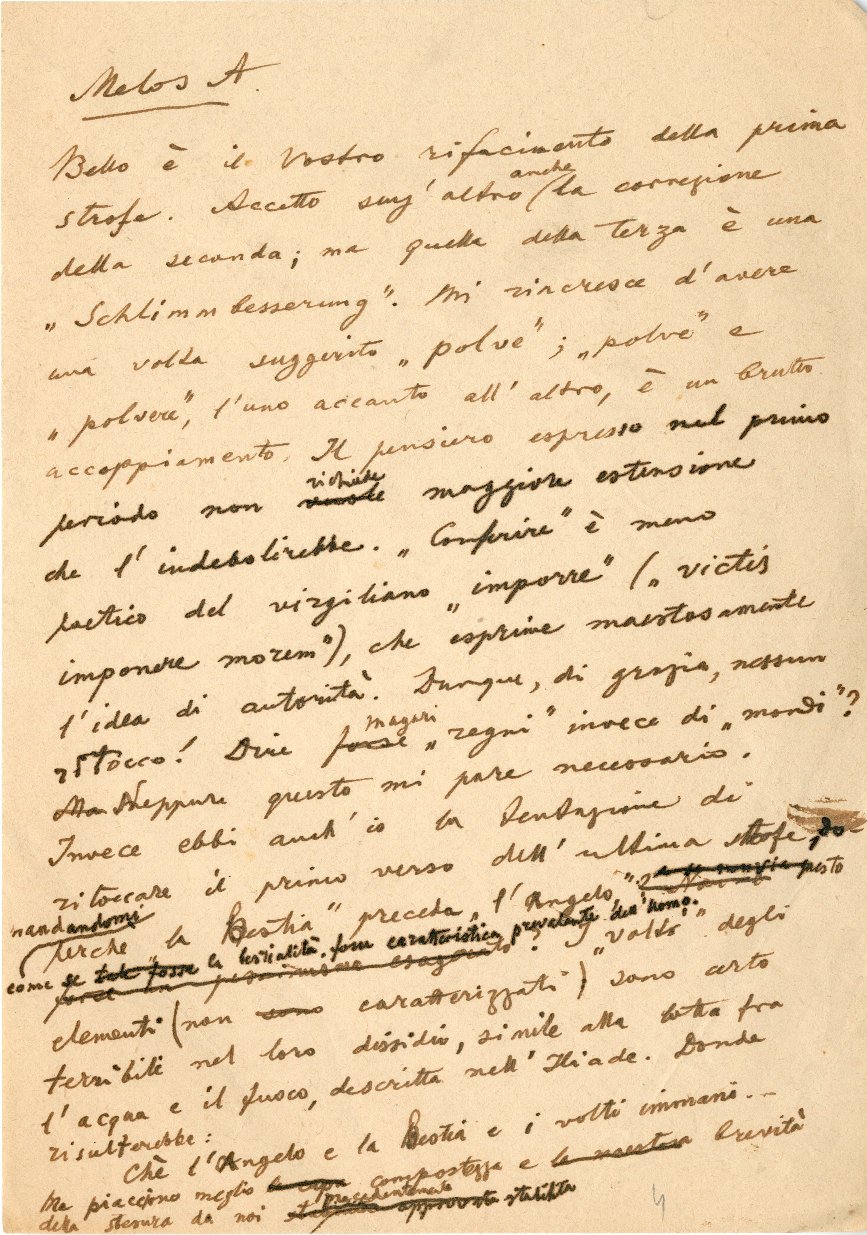 Melos A.
Bello è il Vostro rifacimento della prima
strofe. Accetto senz'altro anche la correzione
della seconda; ma quella della terza è una
„Schlimmbesserung". Mi rincresce d'avere
una volta suggerito „polve"; „polve" e
„polvere", l'uno accanto all'altro, è un brutto
accoppiamento. Il pensiero espresso nel primo
periodo non vuole richiede maggiore estensione
che l'indebolirebbe. „Conferire" è meno
poetico del virgiliano „imporre" („victis
imponere morem"), che esprime maestosamente
l'idea di autorità. Dunque, di grazia, nessun
ritocco! Dire forse magari „regni" invece di „mondi"?
Ma Neppure questo mi pare necessario.
Invece ebbi anch'io la tentazione di
ritoccare il primo verso dell'ultima strofe, do-
mandandomi
perchè „la Bestia" preceda „l'Angelo",? questo
come se tale fosse la bestialità fosse caratteristica prevalente dell'Uomo.
forse un pessimismo esagerato? I „volti" degli
elementi (non sono caratterizzati) sono certo
terribili nel loro dissidio, simile alla lotta fra
l'acqua e il fuoco, descritta nell'Iliade. Donde
risulterebbe:
Chè l'Angelo e la Bestia e i volti immani...
Ma piacciono meglio la compostezza e la nostra brevità
della stesura da noi precedentemente approvata stabilita
4